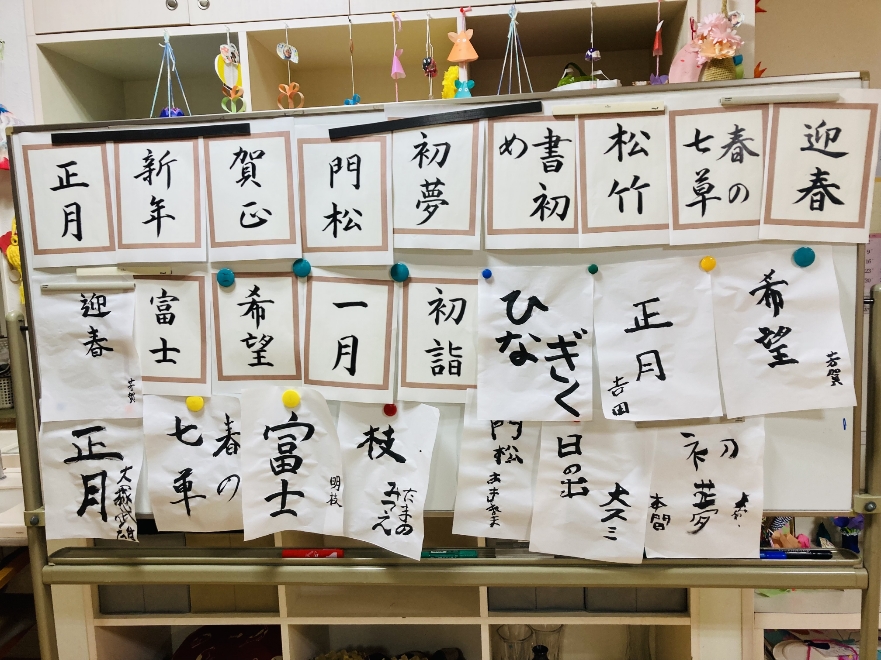 正月
新年
賀正
門松
初夢
書初め
松竹
春の七草
迎春
迎春
芳賀
富士
希望
一月
初詣
ひなぎく
正月
吉田
希望
芳賀
正月
春の
七草
富士
明枝
枝
たまの
みえ
門松
日の出
大スミ
初夢
本間